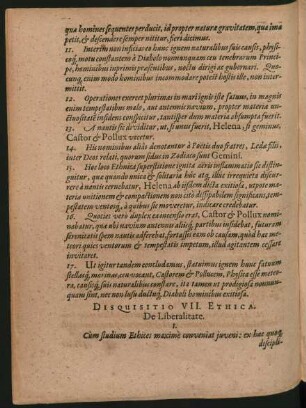 qua homines sequenter perducit, id propter naturæ gravitatem, qua ima
petit, & descendere semper nititur, fieri dicimus.
11. Interim non inficias eo hunc ignem naturalibus suis causis, physi-
cisq; motu constantem à Diabolo nunnunquam ceu tenebrarum Princi-
pe, hominibus inprimis profanis, noctu dirigi ac gubernari. Quo-
cunq; enim modo hominibus incommodare potest hostis iste, non inter-
mittit.
12. Operationes exercet plurimas in mari ignis iste fatuus, in magnis
enim tempestatibus malo, aut antennis nevium, propter materiæ un-
ctuositatem insidens conspicitur, tantisper dum materia absumpta fuerit.
13. A nautis sic dividitur, ut, si unus fuerit, Helena, si geminus,
Castor & Pollux vocetur.
14. His nominibus aliàs denotantur à Poëtis duo fratres, Ledæ filii,
inter Deos relati, quorum sidus in Zodiaco sunt Gemini.
15. Hæc loca Ethnica superstitione
à nautis vocabatur, Helena ab
riæ unitionem & compactionem non citò dissipabilem significans, tem-
pestatem ventorũ, à quibus sic moveretur, indicare credebatur.
16. Quoties verò duplex incensio erat, Castor & Pollux nomi-
nabatur, quæ ubi navium antennis aliisq; partibus insidebat, futuram
serenitatis spem nautis adferebat, forsitan ex ob causam, quòd hac mate-
ria ventorum & tempestatis impetum, illud agitantem cessare
invitaret.
17. Ut igitur tandem concludamus, statuimus ignem hunc fatuum
stellasq; marinas, con vocant, Castorem & Pollucem, Physica esse meteo-
ra, causisq; suis naturalibus constare, ita tamen ut prodegiosa nonnun-
quam sint, nec non lusu ductuq; Diaboli hominibus exitiosa.
DISQUISITIO VII. ETHICA.
De Liberalitate.
I.
Cum studium Ethices maximè conveniat juveni: ex hac quoq;
discipli-